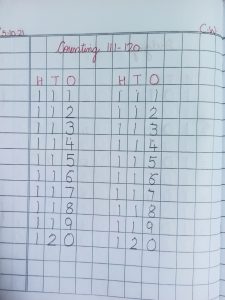 C.W
Counting 111-120
H T O H T O
1 1 1 1 1 1
1 1 2 1 1 2
1 1 3 1 1 3
1 1 4 1 1 4
1 1 5 1 1 5
1 1 6 1 1 6
1 1 7 1 1 7
1 1 8 1 1 8
1 1 9 1 1 9
1 2 0 1 2 0